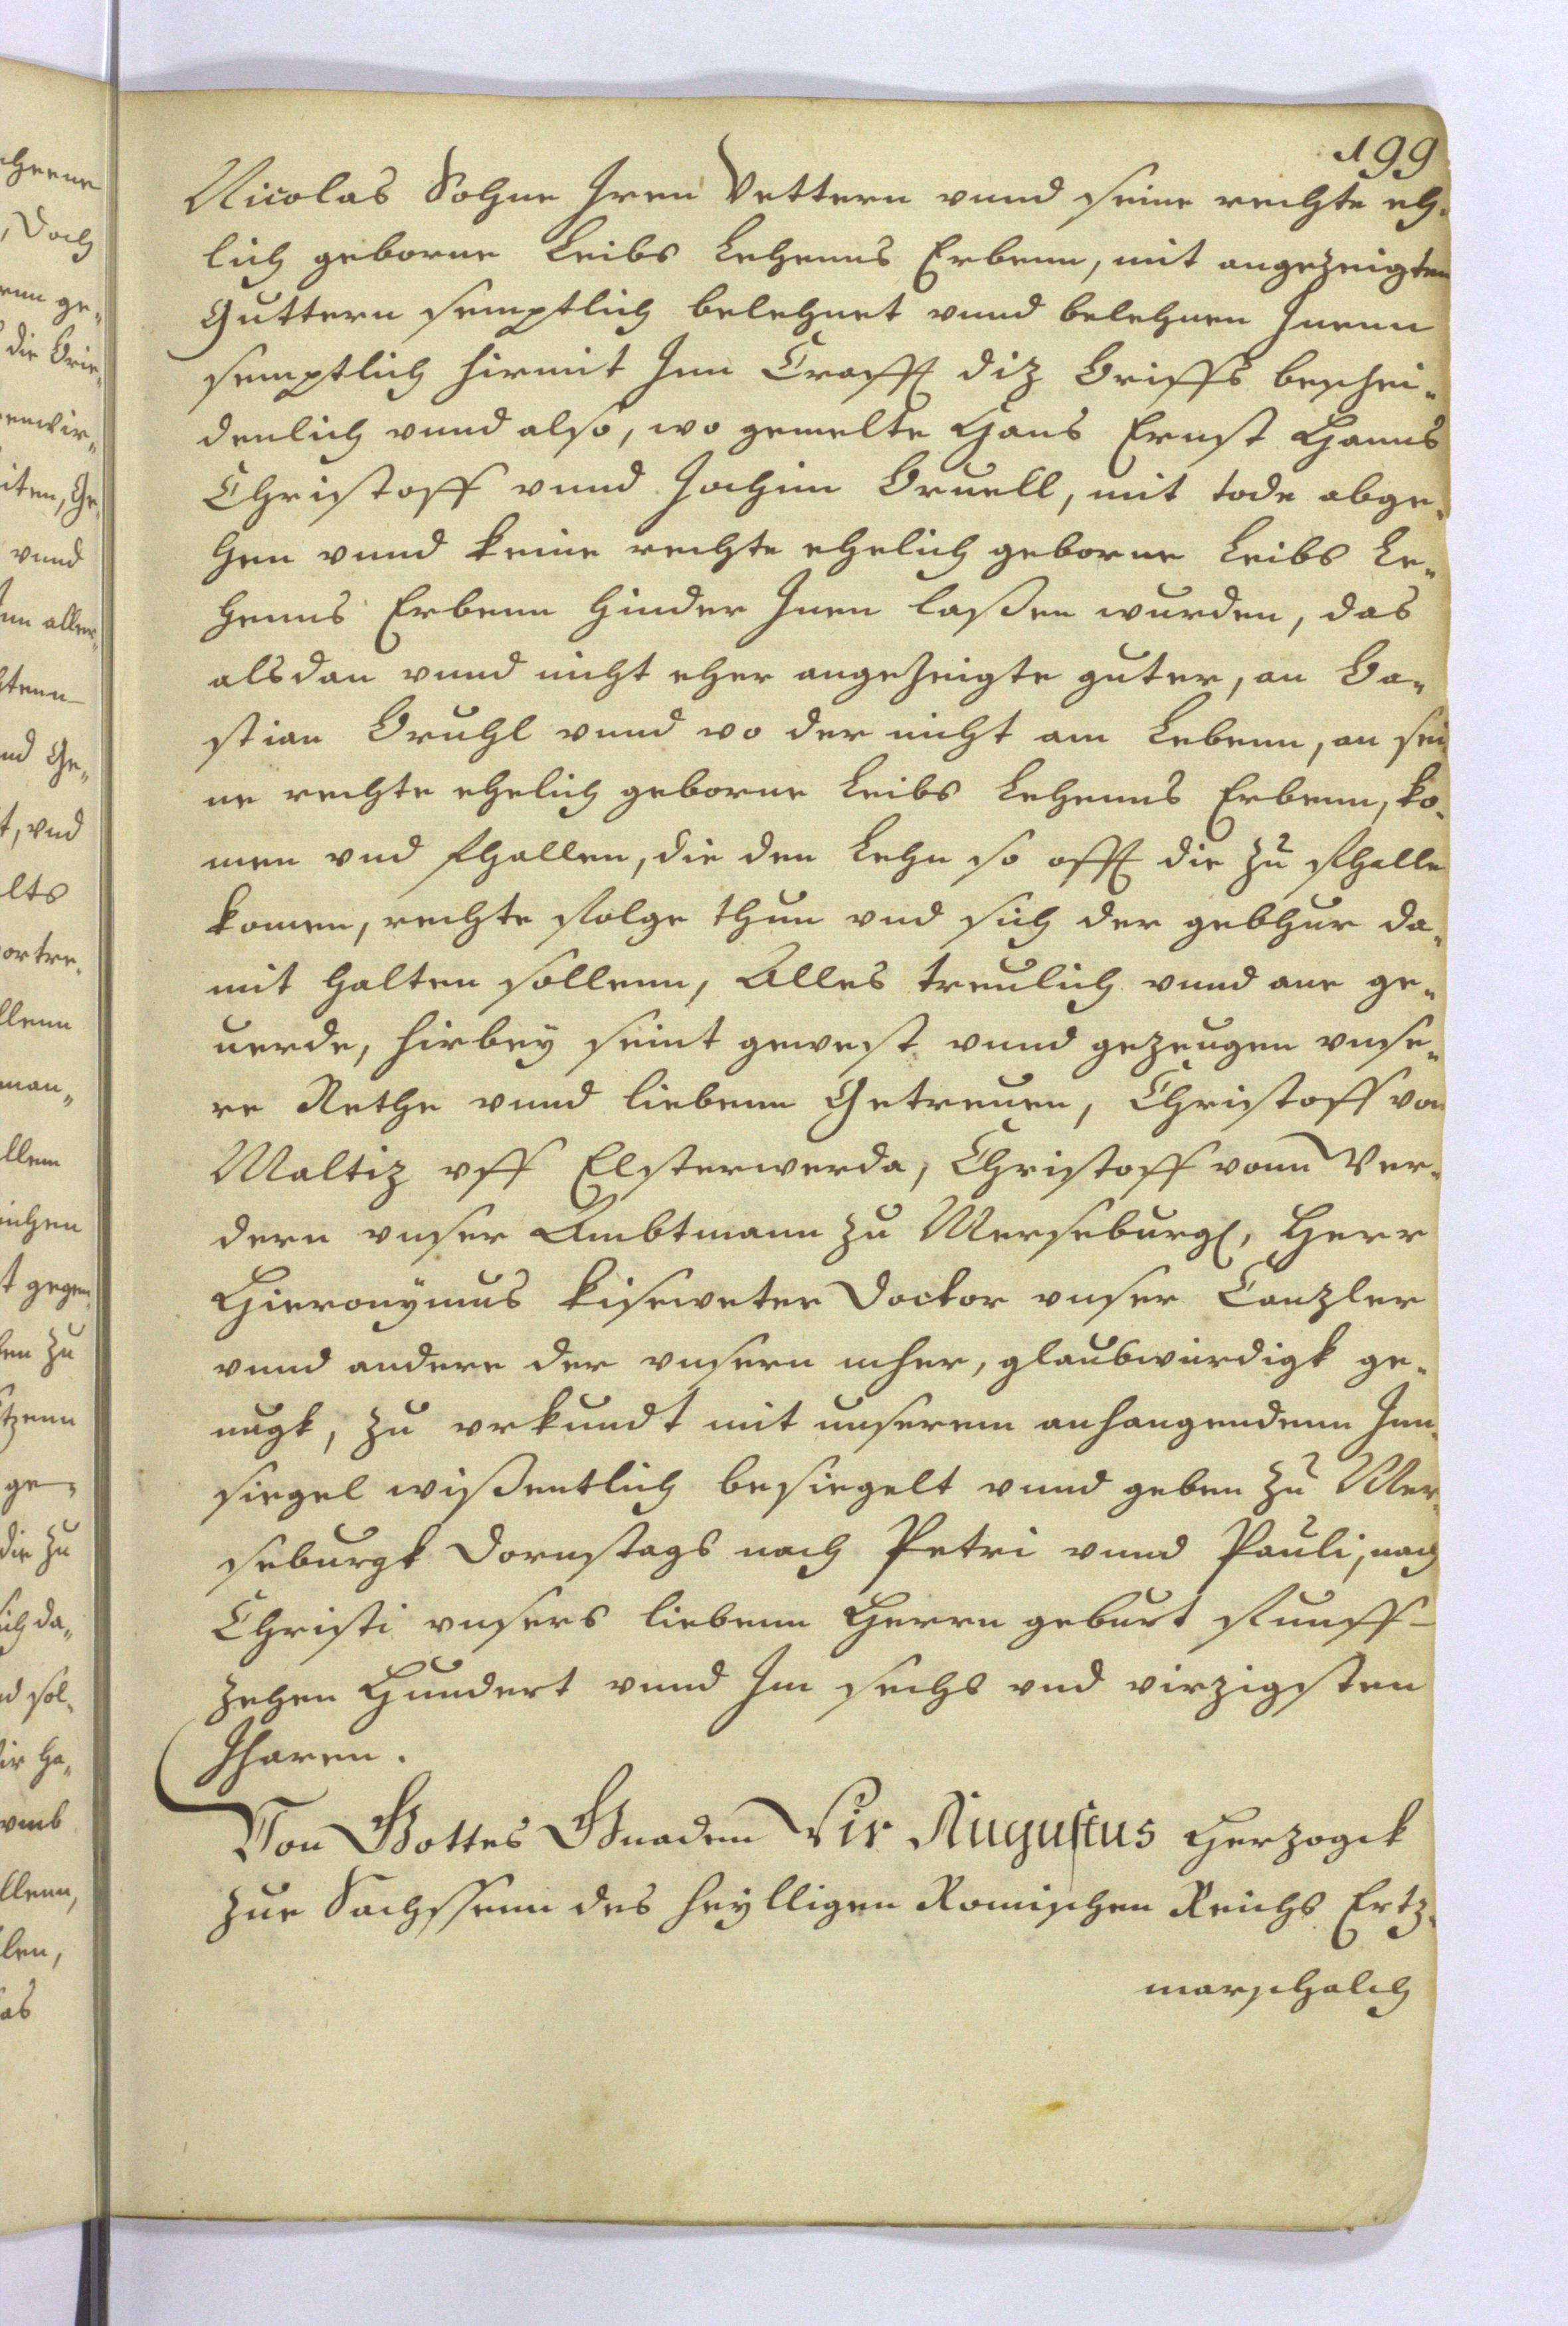 199
Nicolas Sohne Jren Vettern vnnd seine rechte eh-
lich geborne Leibs Lehenns Erbenn, mit angezeigten
Guttern semptlich belehnet vnnd belehnen Jnenn
semptlich hirmit Jnn Crafft diz Briffs beschei-
denlich vnnd also, wo gemelte Hans Ernst Hanns
Christoff vnnd Jochim Bruell, mit tode abge-
hen vnnd keine rechte ehelich geborne Leibs Le-
henns Erbenn hinder Jnen laßen wurden, das
alsdan vnnd nicht eher angezeigte guter, an Ba-
stian Bruhl vnnd wo der nicht am Lebenn, an sei
ne rechte ehelich geborne Leibs Lehenns Erbenn, ko-
men vnd fhallen, die den Lehn so offt die zu fhalle
komen, rechte folge thun vnd sich der gebhur da-
mit halten sollenn, Alles treulich vnnd ane ge-
uerde, hirbey seint gewest vnnd gezeugen vnse-
re Rethe vnnd liebenn Getreuen, Christoff von
Maltiz vff Elsterwerda, Christoff vonn Wer-
dern vnser Ambtmann zu Merseburg, Herr
Hieronÿmus kiseweter Doctor vnser Canzler
vnnd andere der vnsern mher, glaubwurdigk ge-
nugk, zu vrkundt mit unserem anhangendenn Jnn-
siegel wißentlich besiegelt vnnd geben zu Mer-
seburgk Dornstags nach Petri vnnd Pauli, nach
Christi vnsers liebenn Herrn geburt funff-
zehen Hundert vnnd Jm sechs vnd virzigsten
Jharen.
Von Gottes Gnaden Wir Augustus Herzogck
zue Sachssenn des heylligen Romischen Reichs Ertz-
marschalch